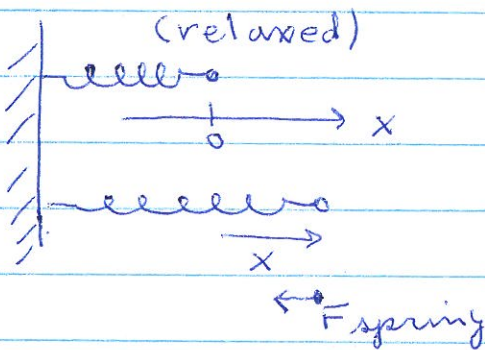 (relaxed)
x
0
x
F spring